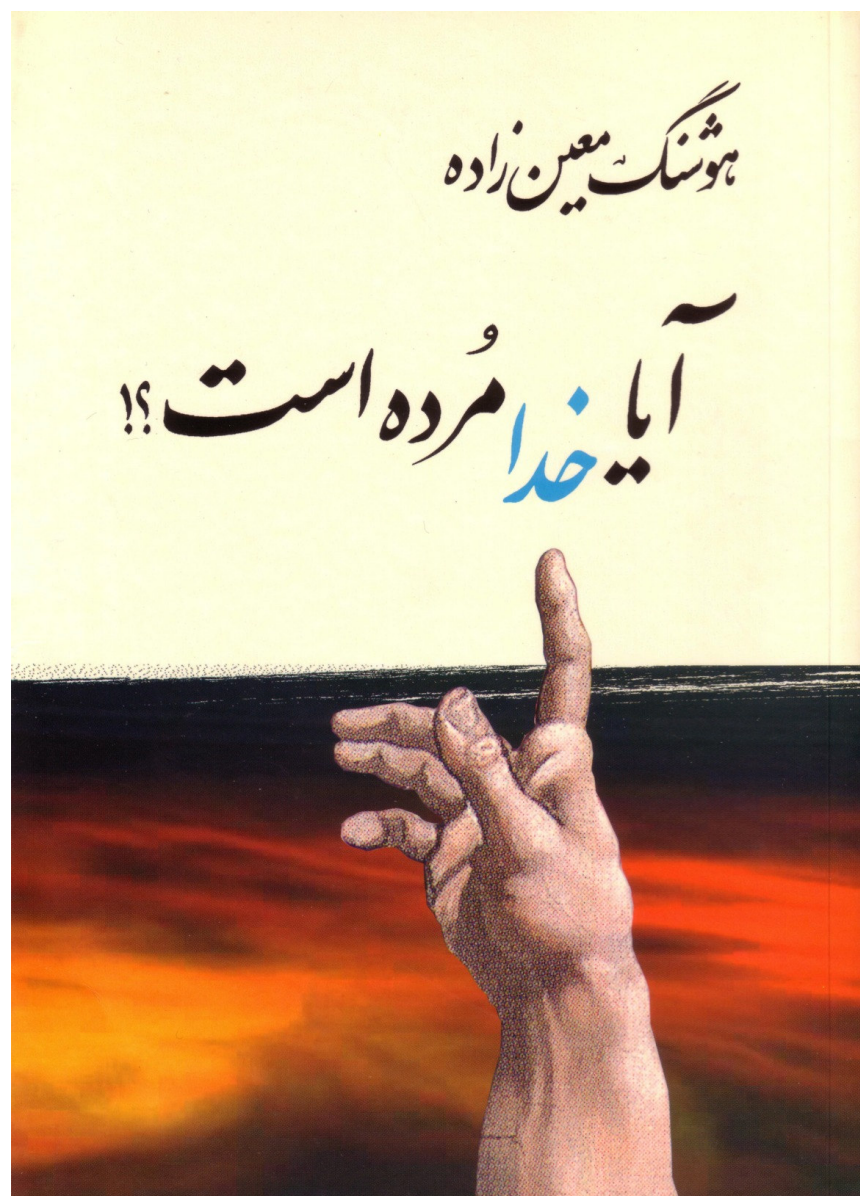 هوشنگ معین زاده
آیا خدا مُرده است؟!